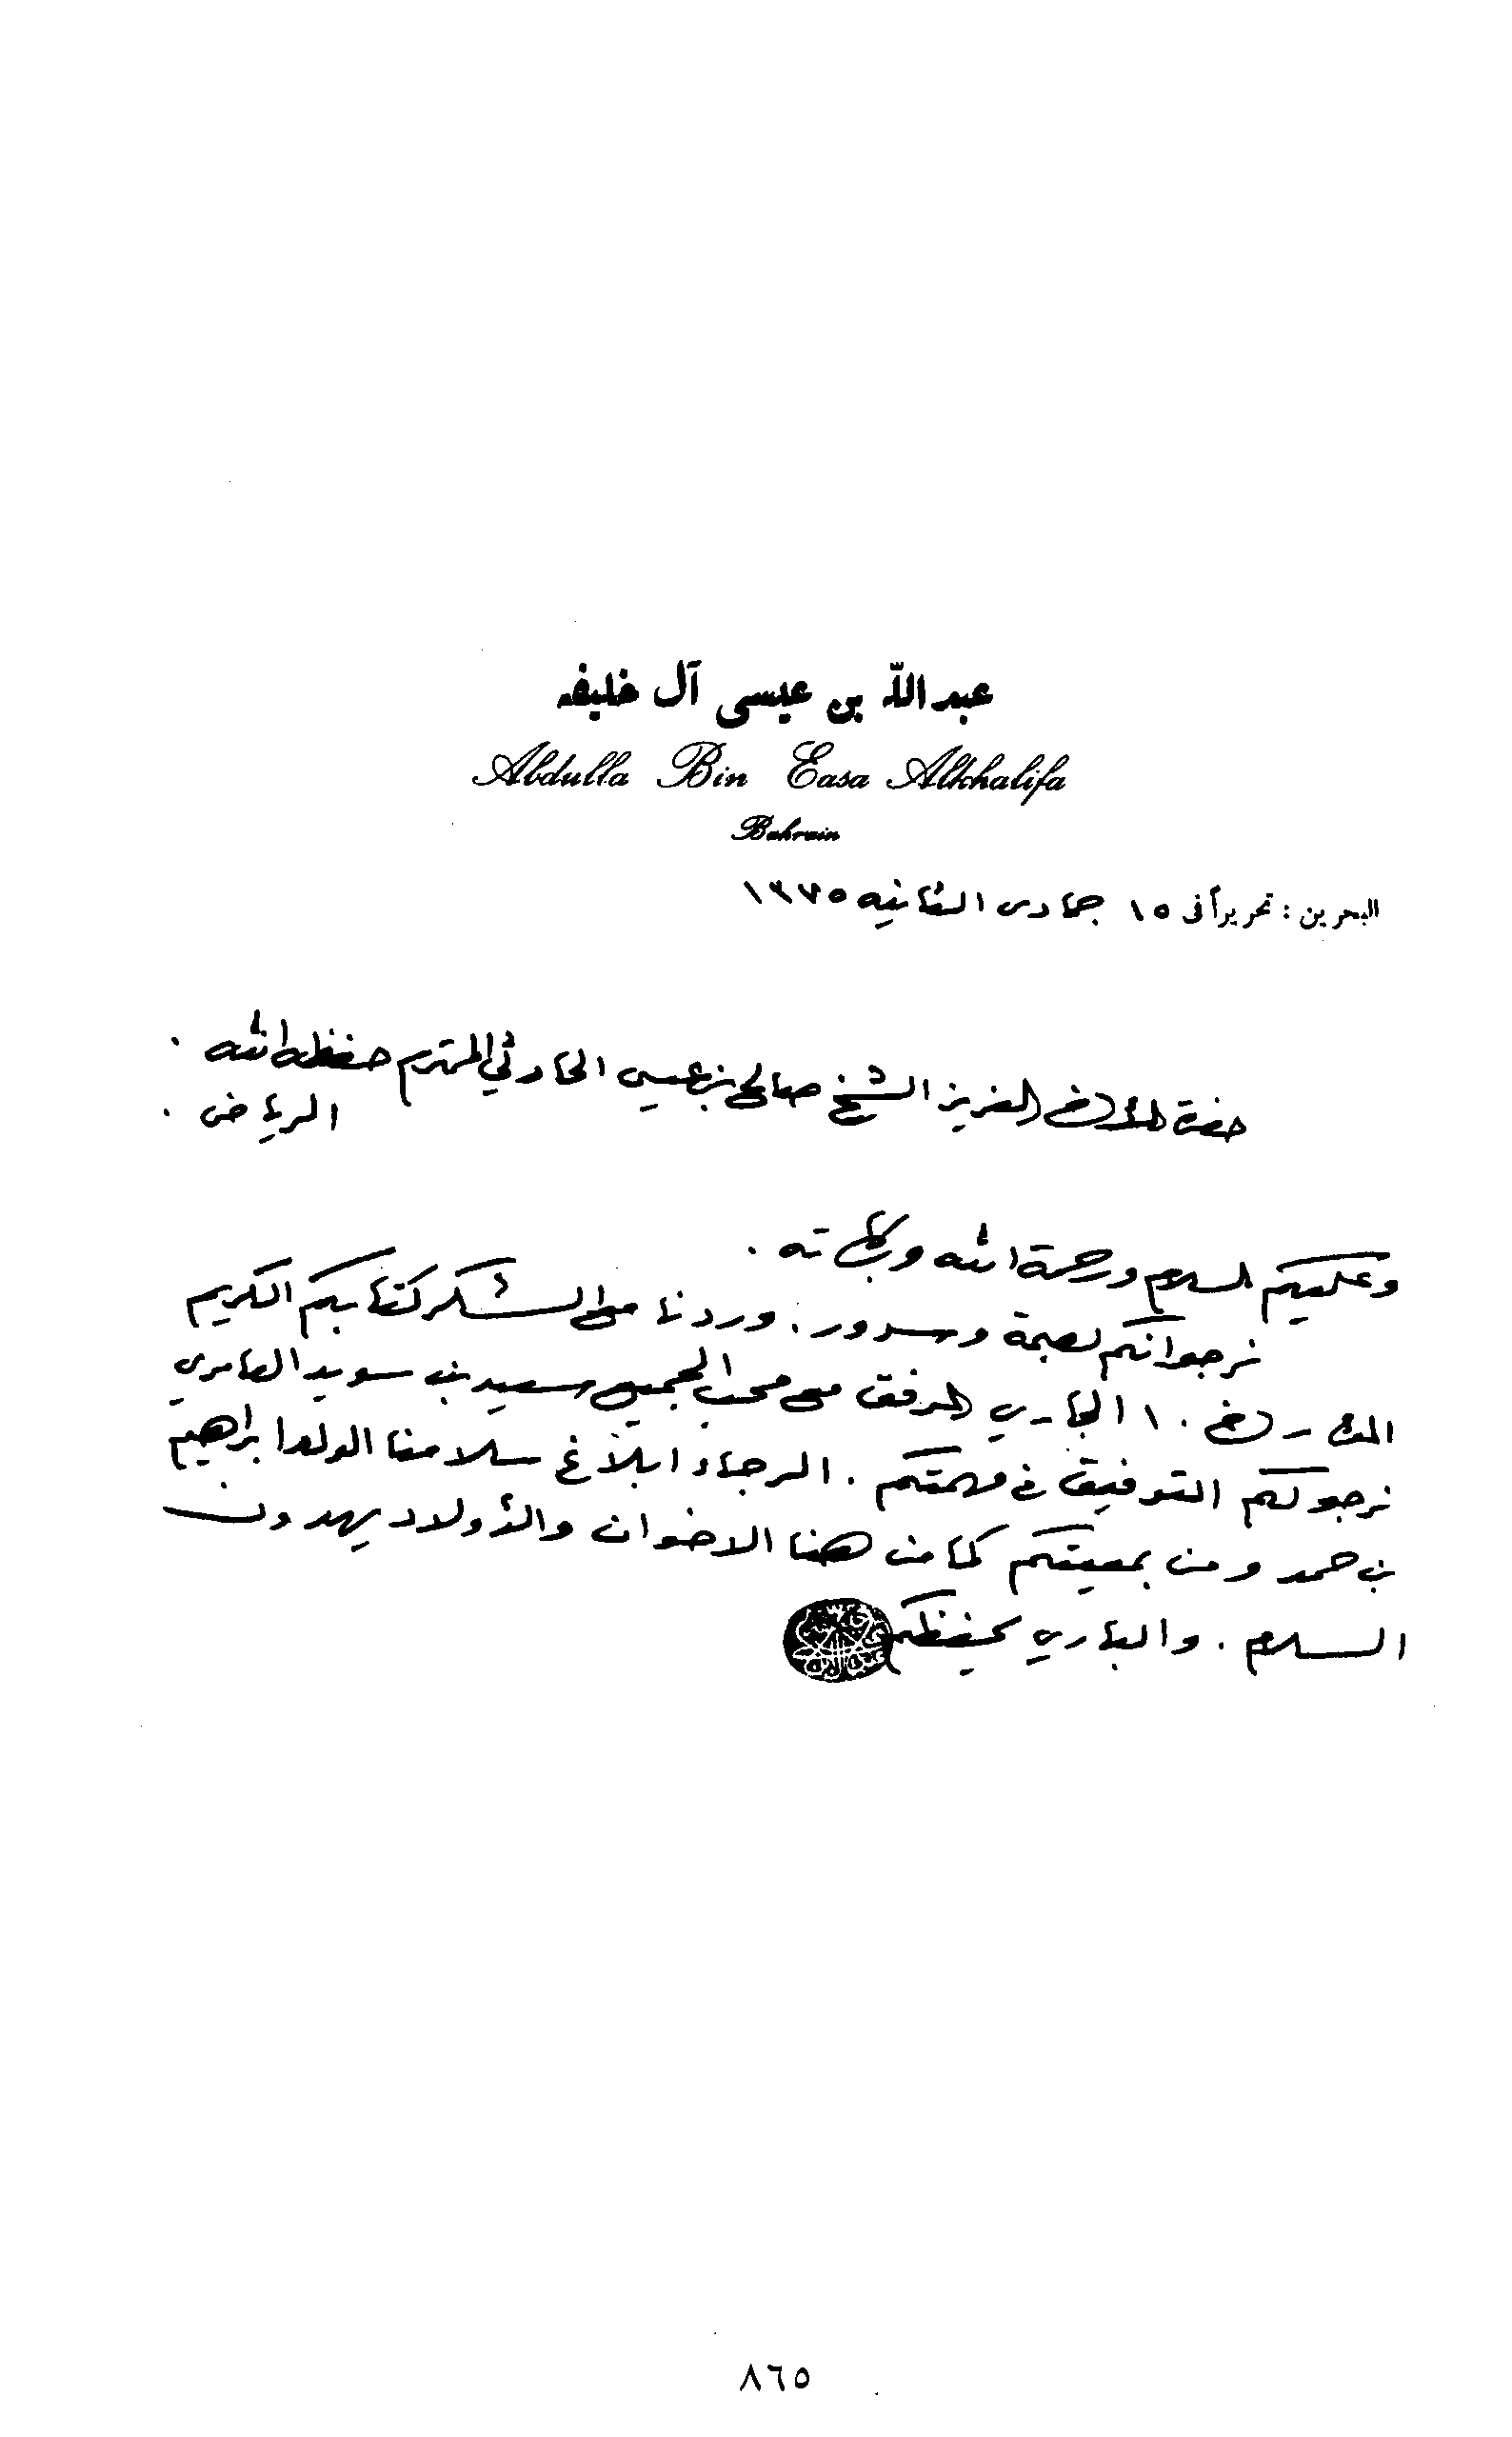 عبد الله بن عيسى آل خليفه
Abdulla Bin Easa Alkhalifa
Bahrain
البحرين : تحريراً فى ١٥ جمادى الثانيه ١٣٧٥
حضرة الأخ العزيز الشيخ صالح بن عيسى الحارثي المحترم حفظه الله .
الرياض .
وعليكم السلام ورحمة الله وبركاته .
نرجوا انكم بصحة وسرور . وردنا مع الشكر كتابكم الكريم
المؤرخ ١٠ الجاري المرفق مع محب الجميع سعيد بن سويد العامري
نرجو لكم التوفيق في مهمتكم . الرجاء ابلاغ سلامنا الولد ابراهيم
بن حمد ومن بمعيتكم كما من هنا الاخوان والأولاد يهدون
السلام . والباري يحفظكم
٨٦٥